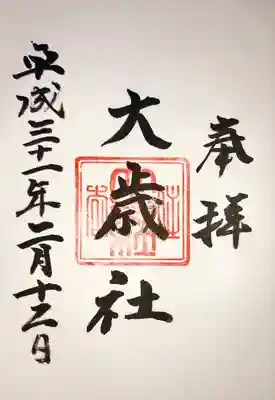 奉拝
大歳社
平成三十一年二月十二日